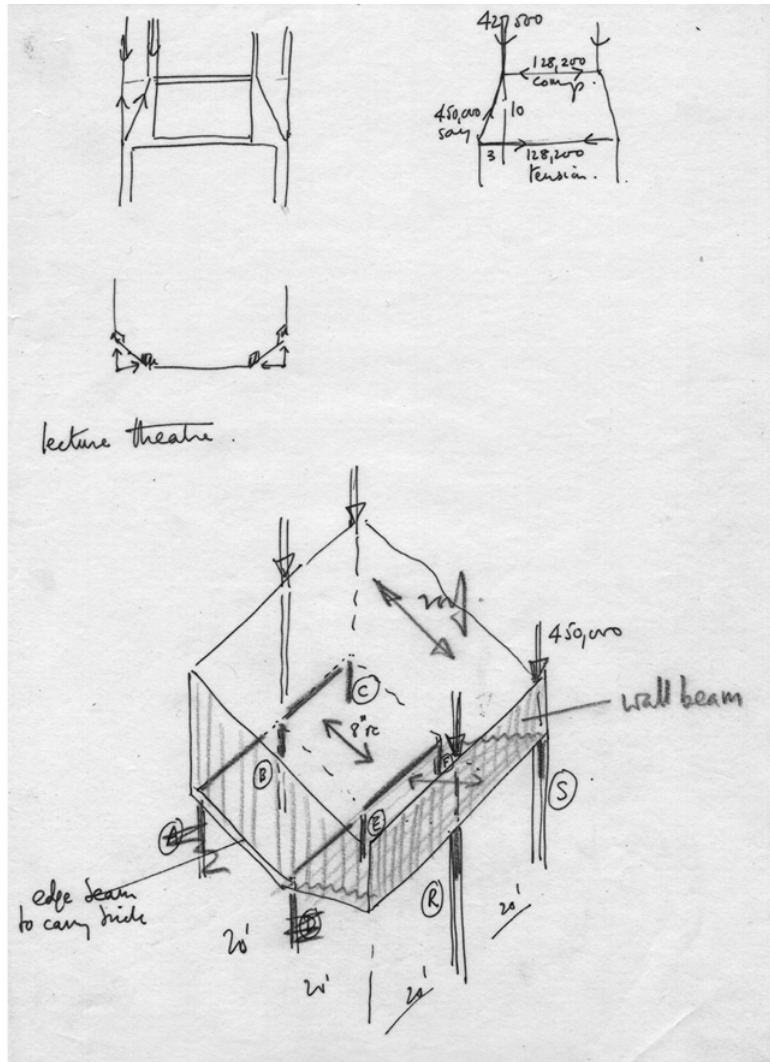 427,500
128,200
comp.
450,000
say
10
3
128,200
tension.
lecture theatre.
450,000
wall beam
C
8" rc
B
F
E
S
A
R
edge beam
to carry brick
D
20'
20'
20'
20'